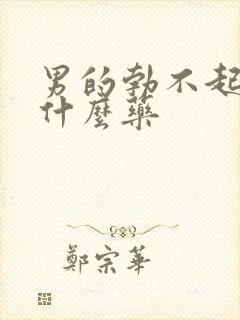 男的勃不起
什麼藥
鄭宗華